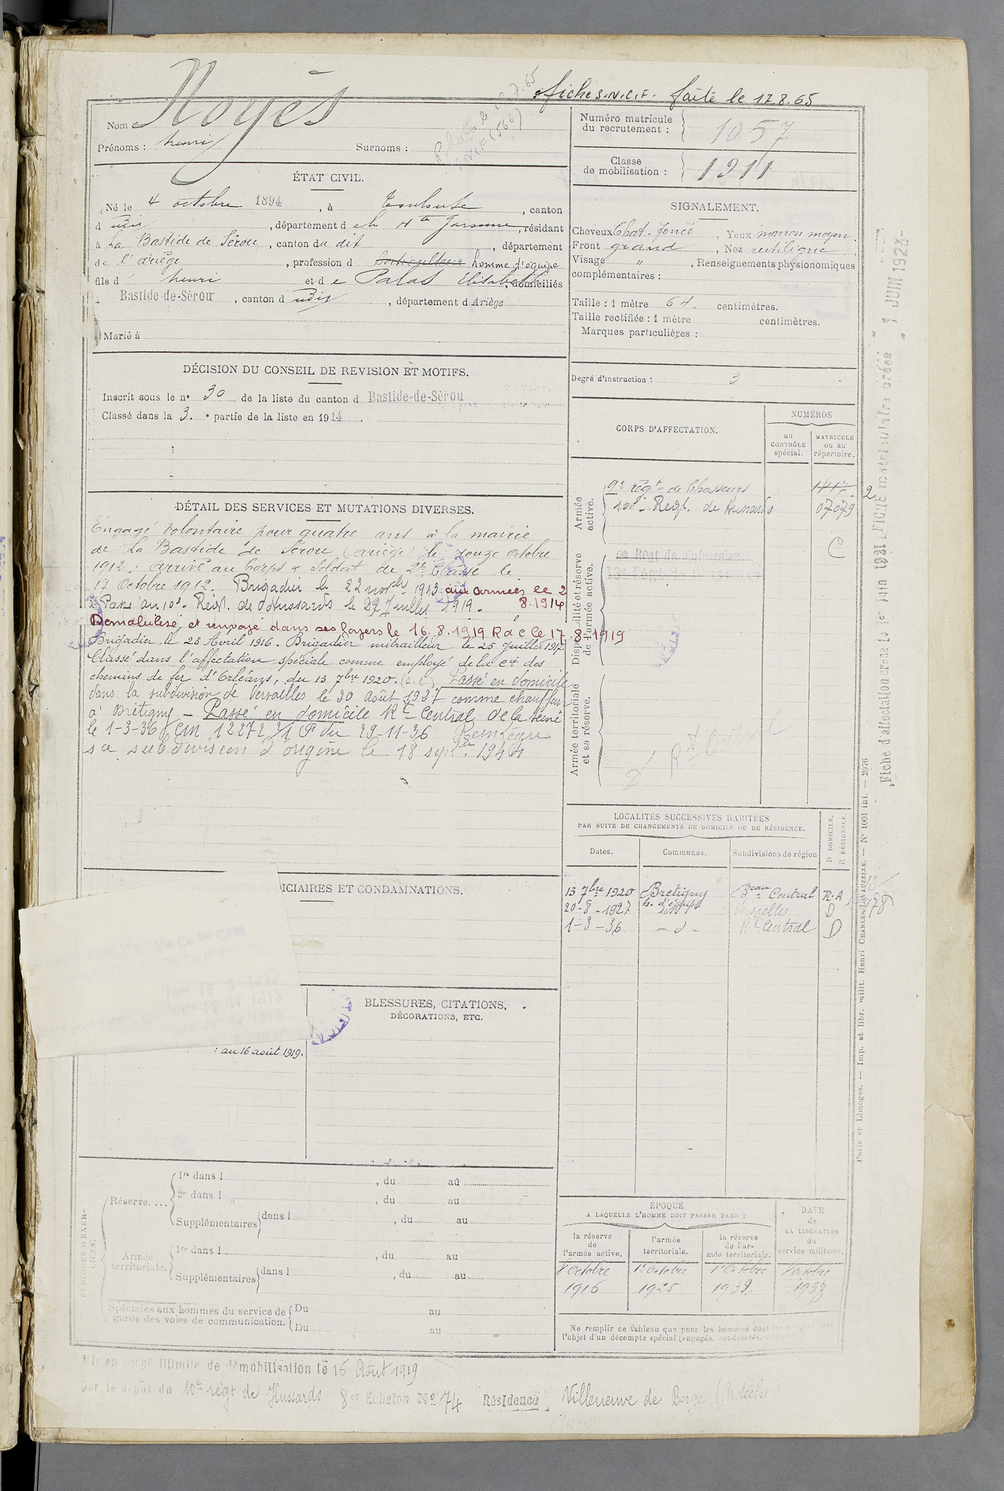 fiche S.N.C.F. faite le 17.8.65
Noyès
Nom
Prénoms : henri
Surnoms :
Numéro matricule du recrutement : 1057
Classe de mobilisation : 1911
ÉTAT CIVIL.
Né le 4 octobre 1894, à Toulouse, canton
d udit, département de la Hte Garonne, résidant
à La Bastide de Sérou, canton du dit, département
de l'ariège, profession d homme d'équipe
fils d' henri et de Palas Elisabeth, domiciliés
Bastide-de-Sérou, canton d udit, département d Ariège
Marié à
SIGNALEMENT.
Cheveux Chat. foncé, Yeux marron moyen
Front grand, Nez rectiligne
Visage " , Renseignements physionomiques
complémentaires :
Taille : 1 mètre 64 centimètres.
Taille rectifiée : 1 mètre centimètres.
Marques particulières :
Degré d'instruction : 3
DÉCISION DU CONSEIL DE REVISION ET MOTIFS.
Inscrit sous le n° 30 de la liste du canton d Bastide-de-Sérou
Classé dans la 3 e partie de la liste en 1914
CORPS D'AFFECTATION.
NUMÉROS
au CONTRÔLE spécial.
MATRICULE ou au répertoire.
Armée active.
9e régt de Chasseurs 1717
10e Regt. de Hussards 07079
C
Disponibilité et réserve de l'armée active.
Armée territoriale et sa réserve.
Rt Central
DÉTAIL DES SERVICES ET MUTATIONS DIVERSES.
Engagé volontaire pour quatre ans à la mairie
de La Bastide de Sérou (ariège) le douze octobre
1912. Arrivé au Corps & Soldat de 2e Classe le
17 Octobre 1912. Brigadier le 22 novbre 1913 aux armées le 2
8.1914
Passé au 10e Régt. de Hussards le 29 Juillet 1919.
Démobilisé et renvoyé dans ses foyers le 16.8.1919 R d C le 17.8.1919
Brigadier le 28 Avril 1916. Brigadier mitrailleur le 25 Juillet 1917
Classé dans l'affectation spéciale comme employé de la Cie des
chemins de fer d'Orléans, du 13 7bre 1920. Passé en domicile
dans la subdivision de Versailles le 30 Août 1927 comme chauffeur
à Brétigny – Passé en domicile Rt Central de la Seine
le 1-3-36 du 29-11-36
sa subdivision d'origine le 18 septbre 1944
LOCALITÉS SUCCESSIVES HABITÉES
PAR SUITE DE CHANGEMENTS DE DOMICILE OU DE RÉSIDENCE.
Dates.
Communes.
Subdivisions de région
D. DOMICILE.
R. RÉSIDENCE.
13 7bre 1920 Bretigny Beau Central R.A
20-8-1927 h. d'équipe Versailles D
1-3-36 – d – Rt Central D
ICIAIRES ET CONDAMNATIONS.
BLESSURES, CITATIONS,
DÉCORATIONS, ETC.
: au 16 août 1919.
Réserve....
1re dans l , du au
2e dans l , du au
Supplémentaires dans l , du au
Armée territoriale.
1re dans l , du au
Supplémentaires dans l , du au
Spéciales aux hommes du service de garde des voies de communication.
Du au
Du au
ÉPOQUE
A LAQUELLE L'HOMME DOIT PASSER DANS :
la réserve de l'armée active.
l'armée territoriale.
la réserve de l'armée territoriale.
DATE de LA LIBÉRATION du service militaire.
Ne remplir ce tableau que pour les hommes dont
l'objet d'un décompte spécial (engagés, condamnés,
Mis en congé illimité de démobilisation le 16 Août 1919
par le dépôt du 10e régt de Hussards 8e Echelon No 74 Résidence Villeneuve de Berg (Ardèche
Fiche d'affectation créée le 1er Juin 1931
1 JUIN 1923
Paris et Limoges. — Imp. et libr. milit. Henri CHARLES-LAVAUZELLE. — N° 1001 int. — 2076